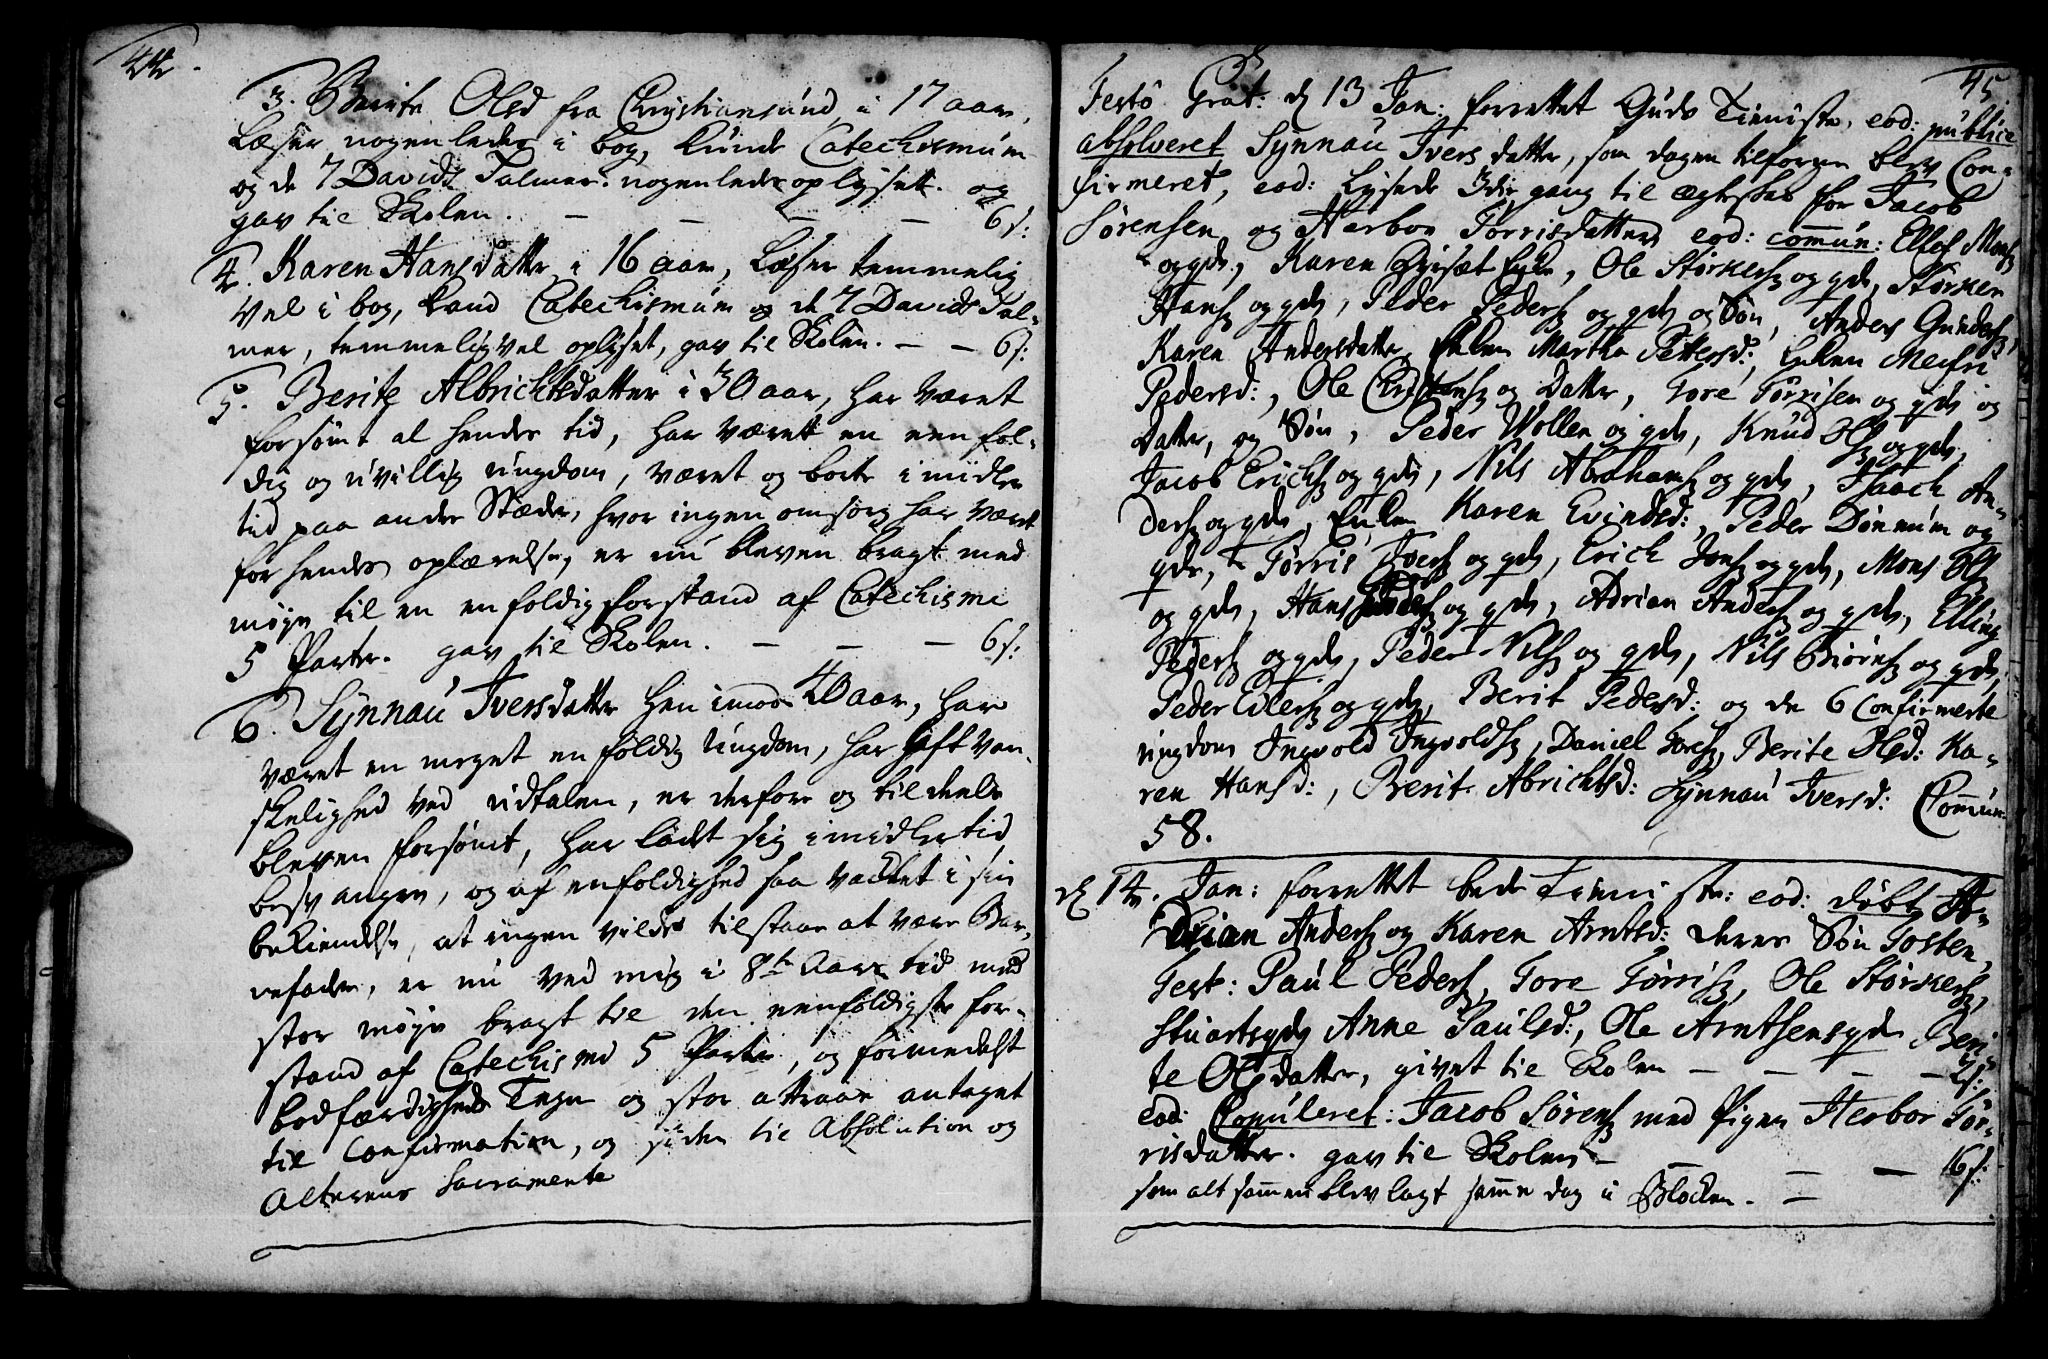 44.
3. Berite Olsd fra Christiansund i 17 aar,
Læser nogenledes i bog, kunde Catechismum
og de 7 Davids Salmer. nogenledes oplyset. og
gav til Skolen. — — — — 6 s:
4. Karen Hansdatter i 16 aar, Læser temmelig
vel i bog, kand Catechismum og de 7 Davids Sal-
mer, temmelig vel oplyset, gav til Skolen. — — 6 s:
5. Berite Albrichtsdatter i 30 aar, har været
forsømt al hendes tid, har værett en eenfol-
dig og uvillig ungdom, været og borte imidler
tid paa andre Stæder, hvor ingen omsorg har været
for hendes oplærelse, er nu bleven bragt med
møye til en enfoldig forstand af Catechismi
5 Parter. gav til Skolen. — — — 6 s:
6. Synnau Iversdatter hen imod 40 aar, har
været en meget enfoldig ungdom, har haft van-
skelighed ved udtalen, er derfore og til deels
bleven forsømt, har ladet sig imidlertid
besvangre, og af enfoldighed saa vacklet i sin
bekiendelse, at ingen vilde tilstaae at være Bar-
nefader, er nu ved mig i 8te Aars tid med
stor møye bragt til den eenfoldigste for-
stand af Catechismi 5 Parter, og formedelst
bodfærdigheds Tegn og stor attraae antaget
til Confirmation, og siden til Absolution og
Alterens Sacramente
45.
Festo Grat: d 13 Jan: forrettet Guds Tieniste, eod: publice
absolveret Synnau Iversdatter, som dagen tilforn blev Con-
firmeret, eod: Lysede 3die gang til ægteskab for Jacob
Sørensen og Harbor Tørrisdatter, eod: commun: Ellef Monss
og qde, Karen Enke, Ole Størkerss og qde, Størker
Hanss og qde, Peder Pederss og qde og Søn, Anders Gunderss,
Karen Andersdatter, Enken Martha Pettersd:, Enken
Pedersd:, Ole Christenss og Datter, Tore Tørrisen og qde og
Datter, og Søn, Peder Wollen og qde, Knud Olss og qde,
Jacob Erichss og qde, Nils Abrahamss og qde, Isaach An-
derss og qde, Enken Karen Evindsd:, Peder Dønnum og
qde, Tørris Iverss og qde, Erich Jonss og qde, Mons Olss
og qde, Hans og qde, Adrian Anderss og qde, Elling
Pederss og qde, Peder Nilss og qde, Nils Biørnss og qde,
Peder Eilerss og qde, Berit Pedersd: og de 6 Confirmerte
ungdom Ingvold Ingvoldss, Daniel Toress, Berite Olsd: Ka-
ren Hansd:, Berit Abrichtsd: Synnau Iversd: Commun
58.
d 14. Jan: forrettet bede Tieniste: eod: døbt A-
drian Anderss og Karen Arntsd: deres Søn Tosten,
Test: Paul Pederss, Tore Tørriss, Ole Størkerss,
Stuartsqde Anne Paulsd:, Ole Arntsens qde Beri-
te Olsdatter, givet til Skolen — — — — s:
eod: Copuleret: Jacob Sørenss med Pigen Herbor Tør-
risdatter. gav til Skolen — — — — 16 s:
som alt sammen blev lagt samme dag i Blocken. —